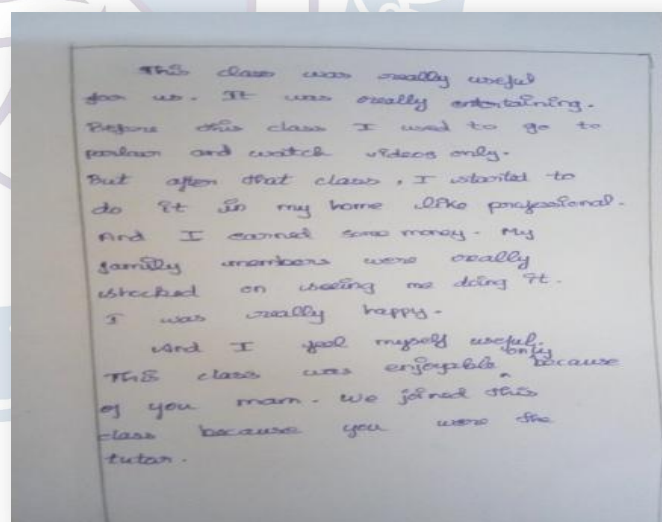 This class was really useful
for us. It was really entertaining.
Before this class I used to go to
parlour and watch videos only.
But after that class, I started to
do it in my home like professional.
And I earned some money. My
family members were really
shocked on seeing me doing it.
I was really happy.
And I feel myself useful.
This class was enjoyable only because
of you mam. We joined this
class because you were the
tutor.